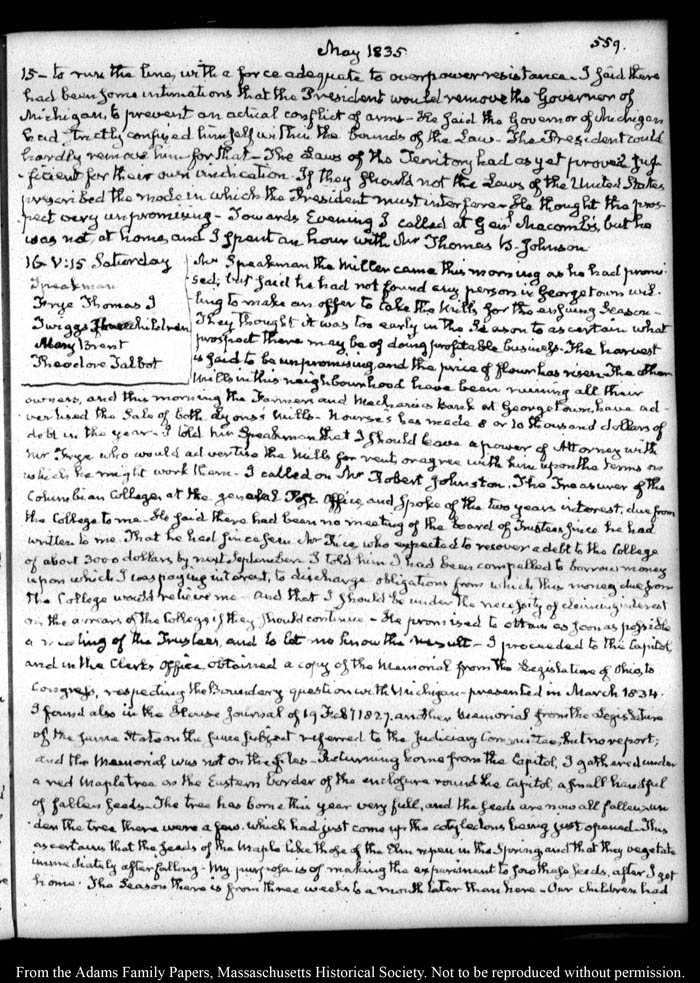 May 1835
559.
15 – to run the line, with a force adequate to overpower resistance. I said there
had been some intimations that the President would remove the Governor of
Michigan, to prevent an actual conflict of arms – He said the Governor of Michigan
had strictly confined himself within the bounds of the Law – The President could
hardly remove him for that – The Laws of the Territory had as yet proved suf-
ficient for their own vindication. If they should not the Laws of the United States
prescribed the mode in which the President must interfere – He thought the pros-
pect very unpromising – Towards Evening I called at Genl. Macomb's, but he
was not at home, and I spent an hour with Mr Thomas B. Johnson
16. V:15 Saturday
Speakman
Frye Thomas J
Twiggs children
Mary Brent
Theodore Talbot
Mr Speakman the Miller came this morning as he had promi-
sed; but said he had not found any person in Georgetown wil-
ling to make an offer to take the Mills for the ensuing Season –
They thought it was too early in the Season to ascertain what
prospect there may be of doing profitable business. The harvest
is said to be unpromising and the price of flour has risen. The other
Mills in this neighbourhood have been ruining all their
owners, and this morning the Farmers and Mechanics Bank at Georgetown, have ad-
vertised the Sale of both Lyons's Mills – Nourse's has made 8 or 10 thousand dollars of
debt in the year – I told him Speakman that I should leave a power of Attorney with
Mr Frye who would advertise the Mills for rent, or agree with him upon the terms on
which he might work them – I called on Mr Robert Johnston, the Treasurer of the
Columbian College, at the general Post Office, and spoke of the two years interest, due from
the College to me – He said there had been no meeting of the Board of Trustees since he had
written to me. That he had since seen Mr Rice, who expected to recover a debt to the College
of about 3000 dollars by next September. I told him I had been compelled to borrow money
upon which I was paying interest, to discharge obligations from which this money due from
the College would relieve me – and that I should be under the necessity of claiming interest
on the arrears of the College if they should continue – He promised to obtain as soon as possible
a meeting of the Trustees, and to let me know the result – I proceeded to the Capitol,
and in the Clerk's Office, obtained a copy of the Memorial from the Legislature of Ohio, to
Congress, respecting the Boundary question with Michigan – presented in March 1834.
I found also in the House Journal of 19 Feby 1827. another Memorial from the Legislature
of the same State on the same subject referred to the Judiciary Committee, but no report;
and the Memorial was not on the files – Returning home from the Capitol, I gathered under
a red Maple tree on the Eastern border of the enclosure round the Capitol, a small handful
of fallen seeds – The tree has borne this year very full, and the seeds are now all fallen; un-
der the tree there were a few which had just come up the cotyledons being just opened – This
ascertains that the seeds of the Maple like those of the Elm ripen in the Spring, and that they vegetate
immediately after falling – My purpose is of making the experiment to sow these seeds, after I get
home. The Season there is from three weeks to a month later than here – Our children had
From the Adams Family Papers, Massachusetts Historical Society. Not to be reproduced without permission.